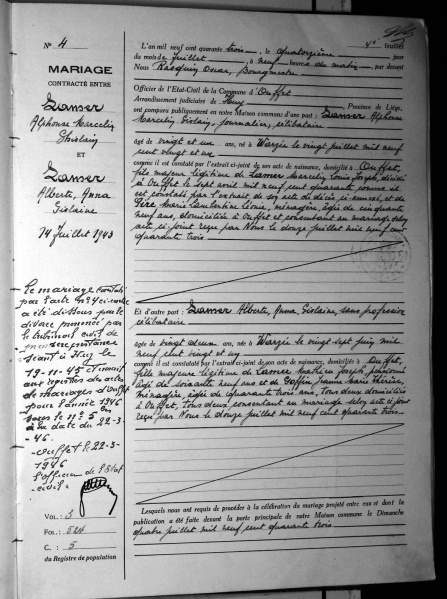 N° 4
MARIAGE
CONTRACTÉ ENTRE
Lamser
Alphonse Marcelin
Ghislain
ET
Lamser
Alberte, Anna
Gislaine
14 Juillet 1943
Le mariage constaté
par l'acte n° 4 ci-contre
a été dissous par le
divorce prononcé par
le tribunal civil de
première instance
séant à Huy le
19-11-45 et transcrit
aux registres des actes
de mariages d'Ouffet
pour l'année 1946
sous le n° 5 en
date du 22-3-
46.
Ouffet le 22-3-
1946
L'officier de l'Etat
civil.
VOL : 3
FOL : 524
C. : 5
du Registre de population
L'an mil neuf cent quarante trois, le quatorzième jour
du mois de Juillet, à neuf heures du matin, par devant
Nous Racquin Oscar, Bourgmestre
Officier de l'Etat-Civil de la Commune d'Ouffet
Arrondissement judiciaire de Huy, Province de Liége,
ont comparu publiquement en notre Maison commune d'une part : Lamser Alphonse
Marcelin Gislain, journalier, célibataire
âgé de vingt et un ans, né à Warzée le vingt juillet mil neuf
cent vingt et un
comme il est constaté par l'extrait ci-joint de son acte de naissance, domicilié à Ouffet,
fils majeur légitime de Lamser Marcelin Louis Joseph, décédé
à Ouffet le sept avril mil neuf cent quarante comme il
est constaté par l'extrait de son acte de décès ci-annexé, et de
Marie Lambertine Léonie, ménagère, âgée de cinquante
neuf ans, domiciliée à Ouffet et consentant au mariage selon
acte ci-joint reçu par Nous le douze juillet mil neuf cent
quarante trois
Et d'autre part : Lamser Alberte, Anna Gislaine, sans profession
célibataire
âgée de vingt deux ans, née à Warzée le vingt sept juin mil
neuf cent vingt et un
comme il est constaté par l'extrait ci-joint de son acte de naissance, domiciliée à Ouffet,
fille majeure légitime de Lamser Mathieu Joseph, pensionné
âgé de soixante neuf ans et de Goffin Jeanne Marie Thérèse,
ménagère, âgée de quarante trois ans, tous deux domiciliés
à Ouffet, tous deux consentant au mariage selon acte ci-joint
reçu par Nous le douze juillet mil neuf cent quarante trois
Lesquels nous ont requis de procéder à la célébration du mariage projeté entre eux et dont la
publication a été faite devant la porte principale de notre Maison commune le Dimanche
quatre juillet mil neuf cent quarante trois